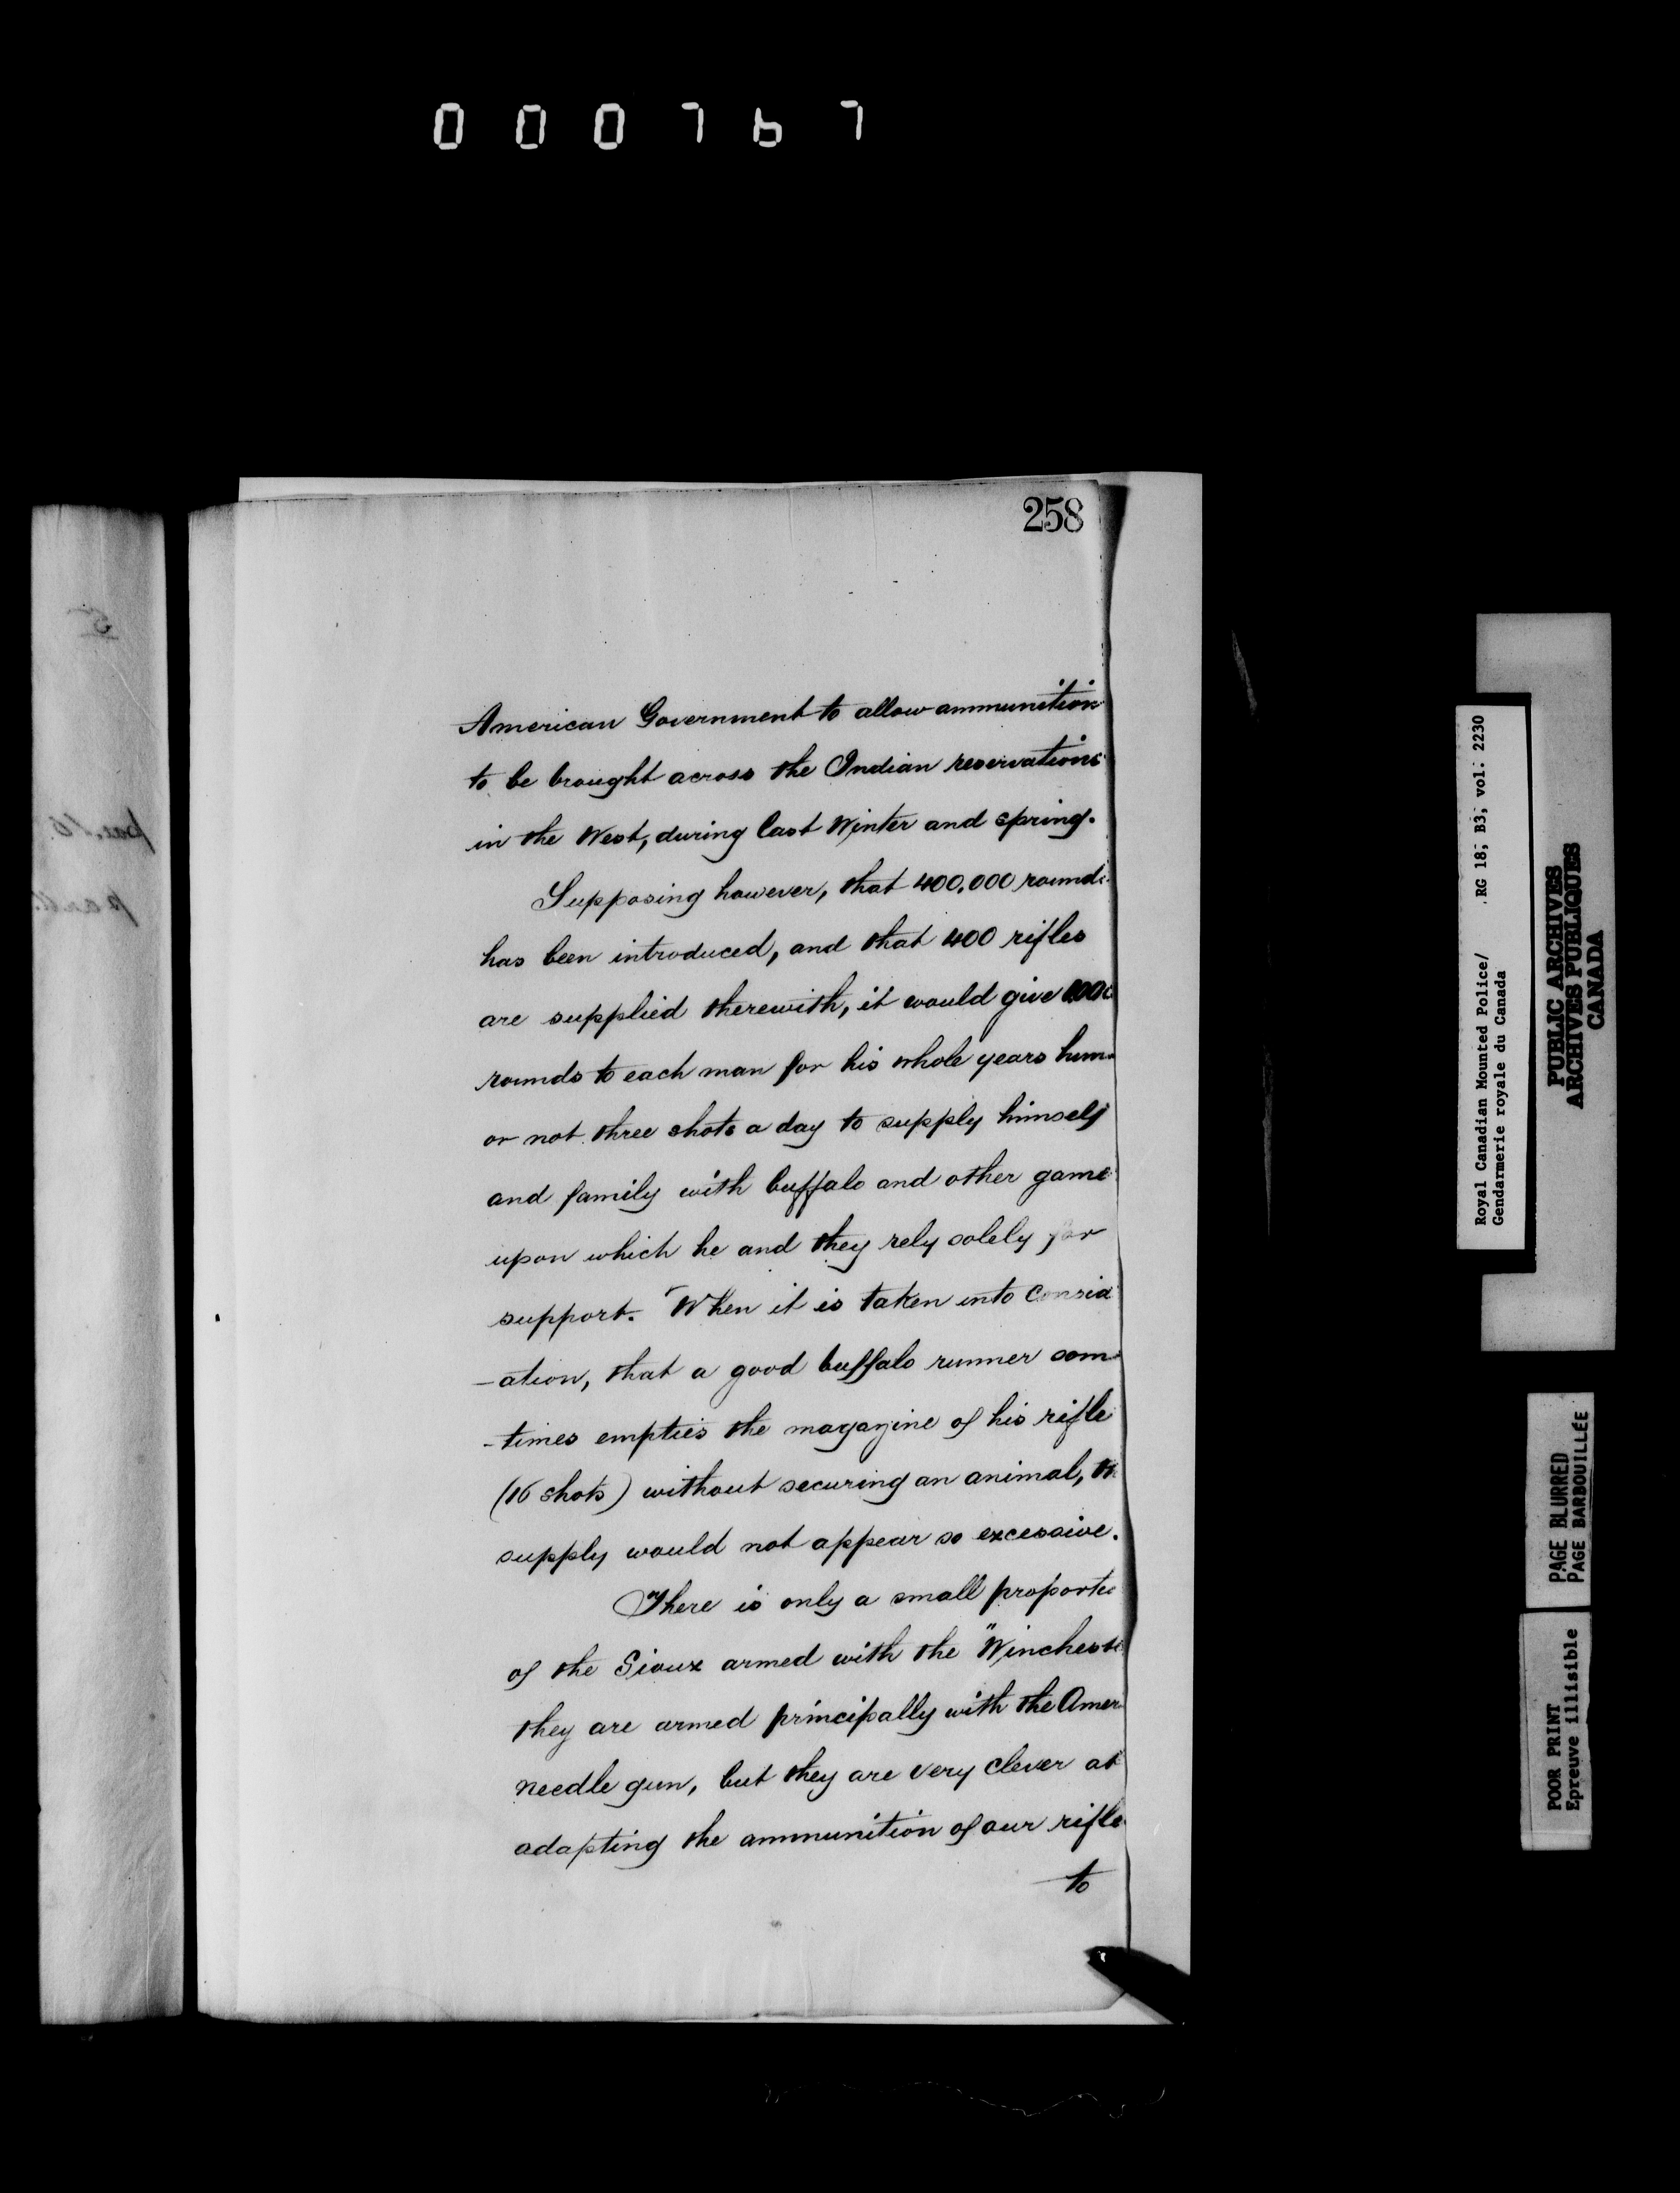 000767
258
American Government to allow ammunition
to be brought across the Indian reservations
in the West, during last Winter and spring.
Supposing however, that 400,000 rounds
has been introduced, and that 400 rifles
are supplied therewith, it would give 1000
rounds to each man for his whole years
or not three shots a day to supply himself
and family with buffalo and other game
upon which he and they rely solely for
support. When it is taken into consid
-ation, that a good buffalo runner som
-times empties the magazine of his rifle
(16 shots) without securing an animal, th
supply would not appear so excessive.
There is only a small proporti
of the Sioux armed with the "Winchest
they are armed principally with the Amer
needle gun, but they are very clever at
adapting the ammunition of our rifle
to
Royal Canadian Mounted Police/ RG 18; B3; vol: 2230
Gendarmerie royale du Canada
PUBLIC ARCHIVES
ARCHIVES PUBLIQUES
CANADA
PAGE BLURRED
PAGE BARBOUILLÉE
POOR PRINT
Epreuve illisible